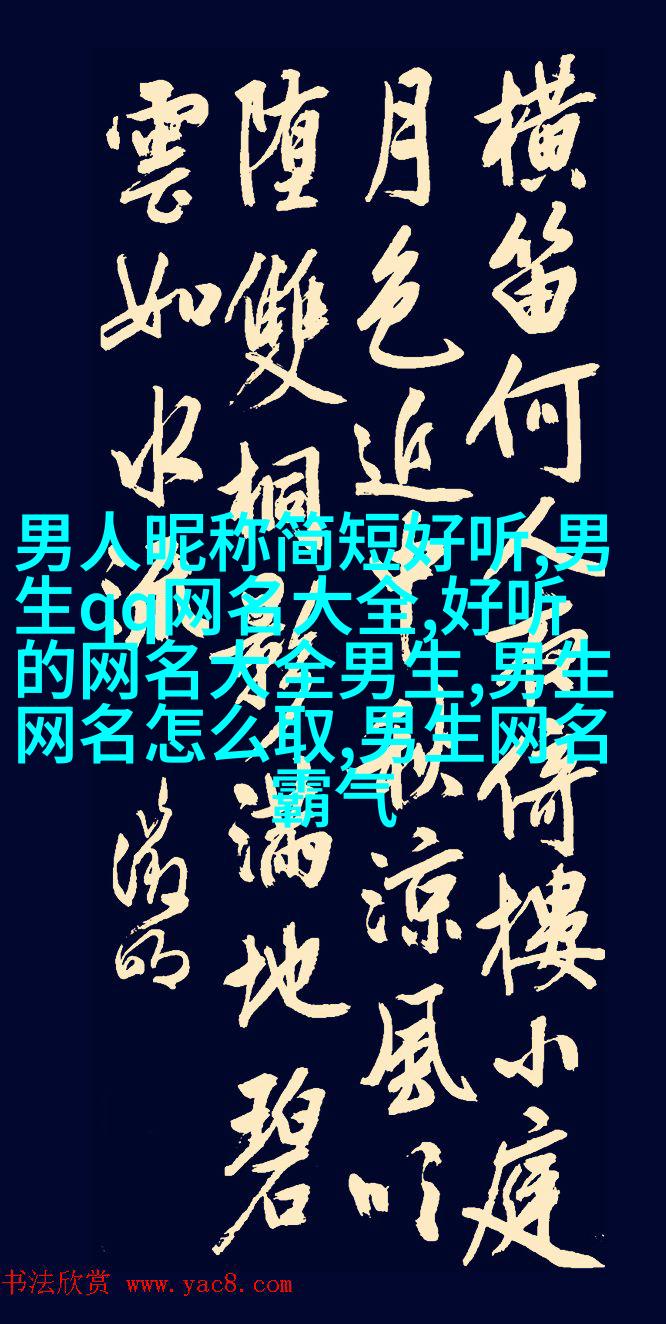 橫笛何人夜倚樓小庭
月色近中秋涼風吹
堕雙桐影滿地碧
雲如水流
徵明
男人昵称简短好听,男
生qq网名大全,好听
的网名大全男生,男生
网名怎么取,男生网名
霸气
书法欣赏 www.yac8.com